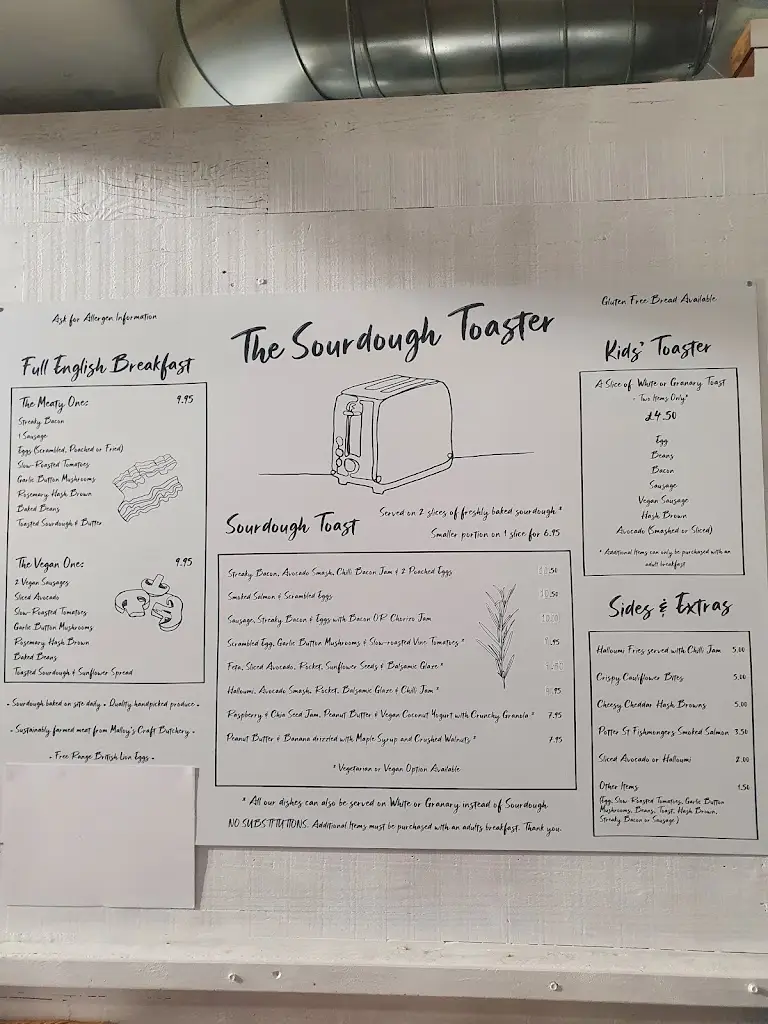 Ask for Allergen Information
Gluten Free Bread Available
The Sourdough Toaster
Full English Breakfast
The Meaty One: 9.95
Streaky Bacon
1 Sausage
Eggs (Scrambled, Poached or Fried)
Slow-Roasted Tomatoes
Garlic Button Mushrooms
Rosemary Hash Brown
Baked Beans
Toasted Sourdough & Butter
The Vegan One: 9.95
2 Vegan Sausages
Sliced Avocado
Slow-Roasted Tomatoes
Garlic Button Mushrooms
Rosemary Hash Brown
Baked Beans
Toasted Sourdough & Sunflower Spread
- Sourdough baked on site daily - Quality handpicked produce -
- Sustainably farmed meat from Malloy's Craft Butchery -
- Free Range British Lion Eggs -
Served on 2 slices of freshly baked sourdough *
Sourdough Toast
Smaller portion on 1 slice for 6.95
Streaky Bacon, Avocado Smash, Chilli Bacon Jam & 2 Poached Eggs
Smoked Salmon & Scrambled Eggs
Sausage, Streaky Bacon & Eggs with Bacon OR Chorizo Jam
Scrambled Egg, Garlic Button Mushrooms & Slow-roasted Vine Tomatoes *
Feta, Sliced Avocado, Rocket, Sunflower Seeds & Balsamic Glaze *
Halloumi, Avocado Smash, Rocket, Balsamic Glaze & Chilli Jam *
Raspberry & Chia Seed Jam, Peanut Butter & Vegan Coconut Yogurt with Crunchy Granola * 7.95
Peanut Butter & Banana drizzled with Maple Syrup and Crushed Walnuts * 7.95
* Vegetarian or Vegan Option Available
* All our dishes can also be served on White or Granary instead of Sourdough
NO SUBSTITUTIONS. Additional Items must be purchased with an adults breakfast. Thank you.
Kids' Toaster
A Slice of White or Granary Toast
- Two Items Only*
£4.50
Egg
Beans
Bacon
Sausage
Vegan Sausage
Hash Brown
Avocado (Smashed or Sliced)
* Additional Items can only be purchased with an
adult breakfast
Sides & Extras
Halloumi Fries served with Chilli Jam 5.00
Crispy Cauliflower Bites 5.00
Cheesy Cheddar Hash Browns 5.00
Potter St Fishmongers Smoked Salmon 3.50
Sliced Avocado or Halloumi 2.00
Other Items 1.50
(Egg, Slow-Roasted Tomatoes, Garlic Button
Mushrooms, Beans, Toast, Hash Brown,
Streaky Bacon or Sausage)